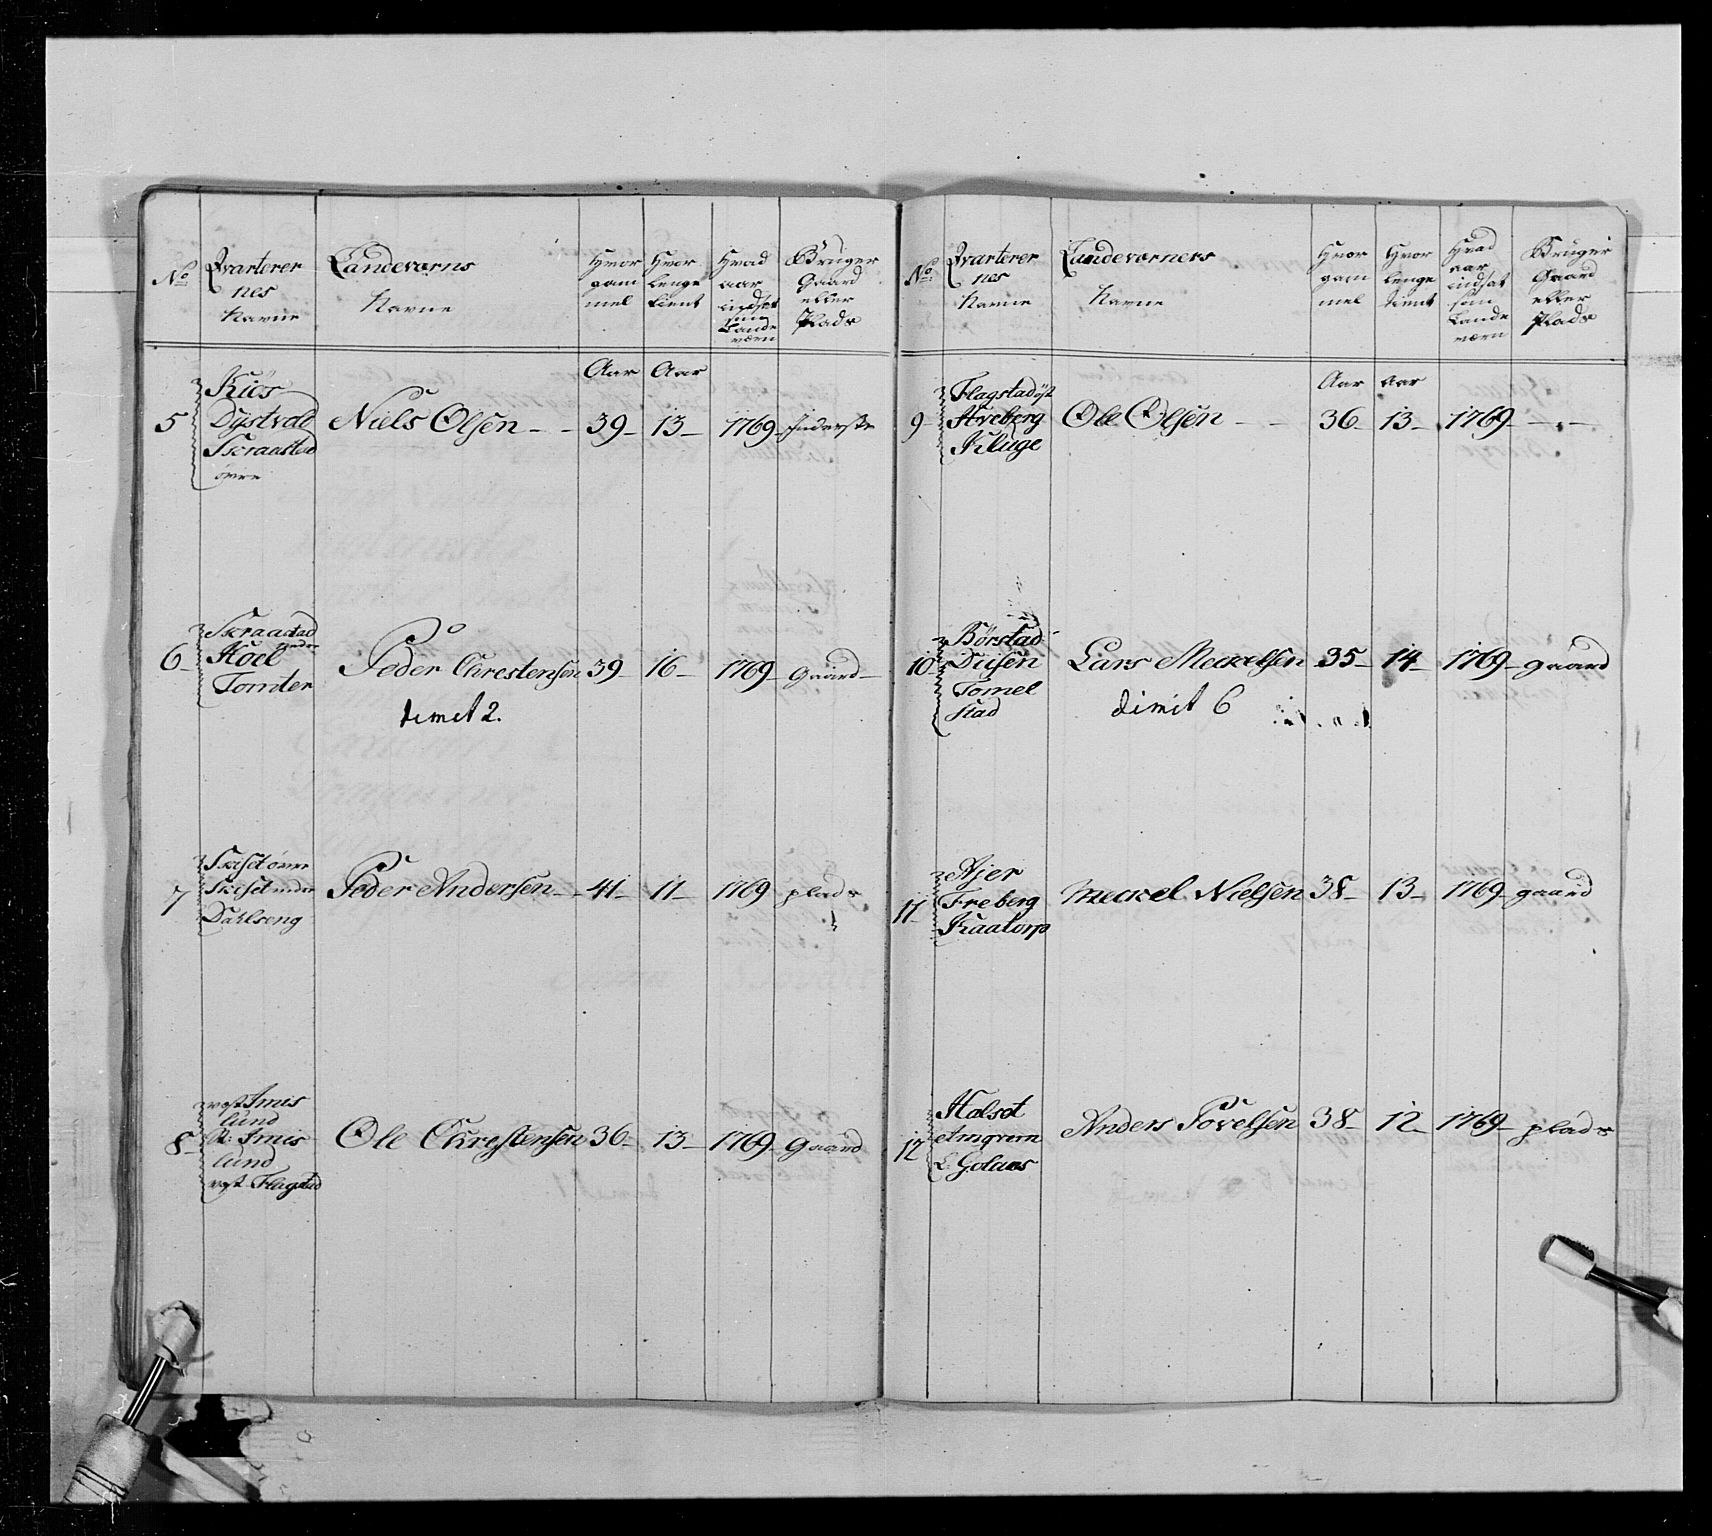 No
Qvarterer
nes
Navne
Landeværns
Navne
Hvor
gam
mel
Hvor
lenge
tient
Hvad
aar
indsat
som
Lande
værn
Bruger
Gaard
eller
Plads
Aar Aar
5
Kiøs
Dystvold
Skraastad
øvre
Niels Olsen - - 39 - 13 - 1769 - Inderste
6
Skraastad
nedre
Hoel
Tomter
Peder Chrestensen 39 - 16 - 1769 - gaard -
dimit 2.
7
Skiset øvre
Skiset nedre
Dahlseng
Peder Andersen - - 41 - 11 - 1769 plads
8
vest Imis
lund
Imis
lund
vest Flagstad
Ole Chrestensen 36 - 13 - 1769 - Gaard
No
Qvarterer
nes
Navne
Landeværners
Navne
Hvor
gam
mel
Hvor
lenge
tient
Hvad
aar
indsat
som
Lande
værn
Bruger
Gaard
eller
Plads
Aar Aar
9
Flagstad øst
Areberg
Kluge
Ole Olsen - - 36 - 13 - 1769 - - -
10
Børstad
Disen
Tomel
stad
Lars Meckelsen 35 - 14 - 1769 - gaard
dimit 6
11
Ajer
Freberg
Kaatorp
Meckel Nielsen 38 - 13 - 1769 - gaard
12
Halset
Arngrim
Anders Povelsen 38 - 12 - 1769 - plads